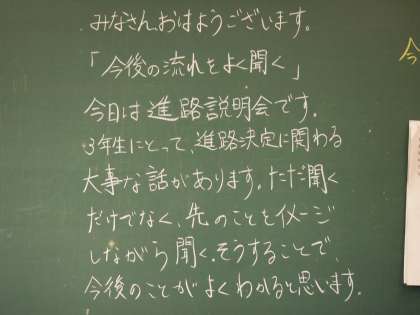 みなさん、おはようございます。
「今後の流れをよく聞く」
今日は進路説明会です。
3年生にとって、進路決定に関わる
大事な話があります。ただ聞く
だけでなく、先のことをイメージ
しながら聞く。そうすることで、
今後のことがよくわかると思います。
今